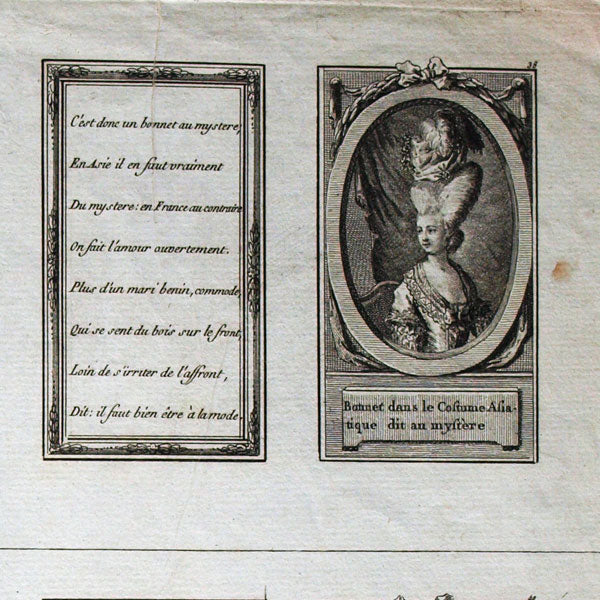 C'est donc un bonnet au mystere,
En Asie il en faut vraiment
Du mystere: en France au contraire
On fait l'amour ouvertement.
Plus d'un mari benin, commode,
Qui se sent du bois sur le front,
Loin de s'irriter de l'affront,
Dit: il faut bien être à la mode.
38
Bonnet dans le Costume Asia-
tique dit au mystère